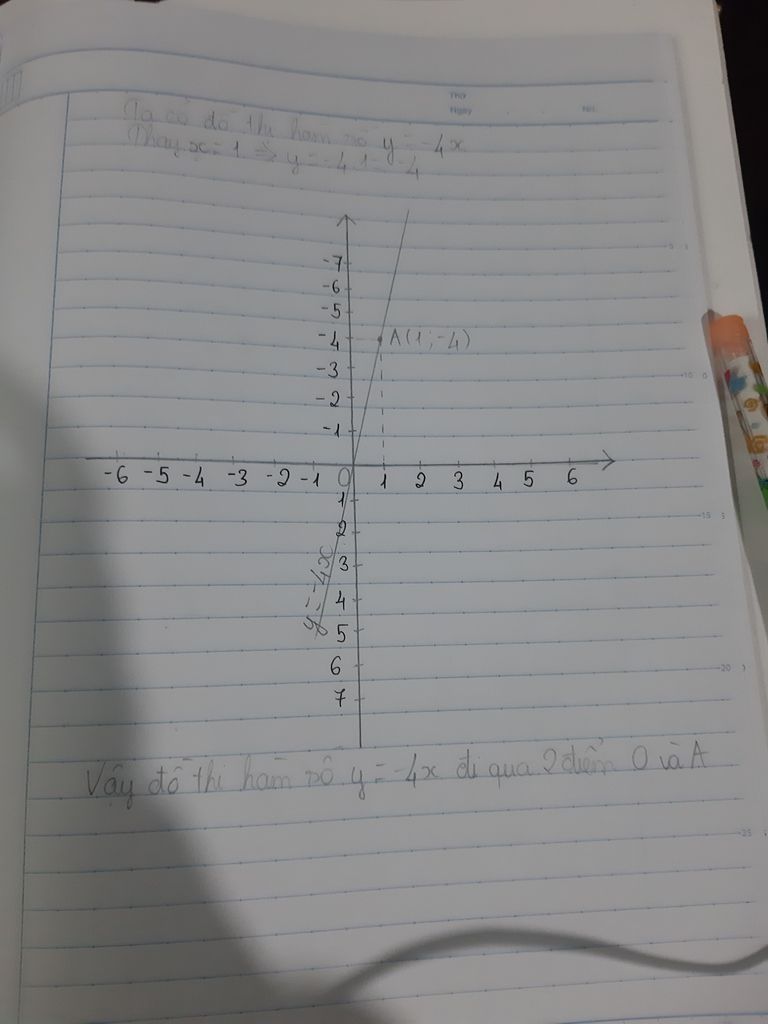 Thứ
Ngày No.
Ta có đồ thị hàm số y = -4x
Thay x = 1 ⇒ y = -4.1 = -4
-7
-6
-5
-4 A(1;-4)
-3
-2
-1
-6 -5 -4 -3 -2 -1 O 1 2 3 4 5 6
1
2
3
y = -4x
4
5
6
7
Vậy đồ thị hàm số y = -4x đi qua 2 điểm O và A